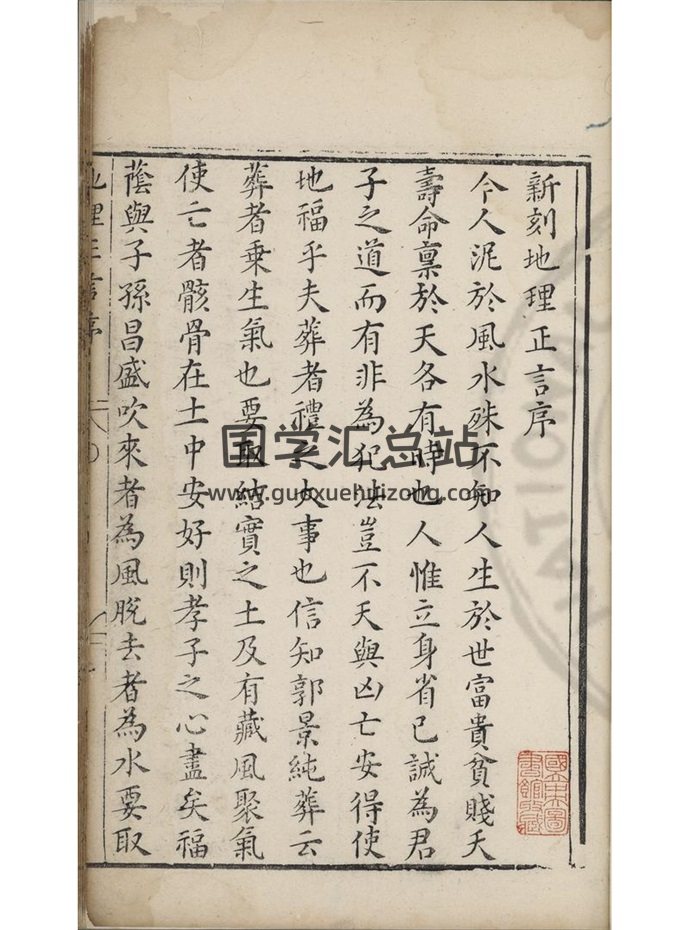 新刻地理正言序
今人泥於風水殊不知人生於世富貴貧賤夭
壽命稟於天各有時也人惟立身省己誠為君
子之道而有非為犯法豈不天與凶亡安得使
地福乎夫葬者禮之大事也信知郭景純葬云
葬者乗生氣也要取結實之土及有藏風聚氣
使亡者骸骨在土中安好則孝子之心盡矣福
蔭與子孫昌盛吹來者為風脫去者為水要取
地理正言序
国学汇总站
www.guoxuehuizong.com